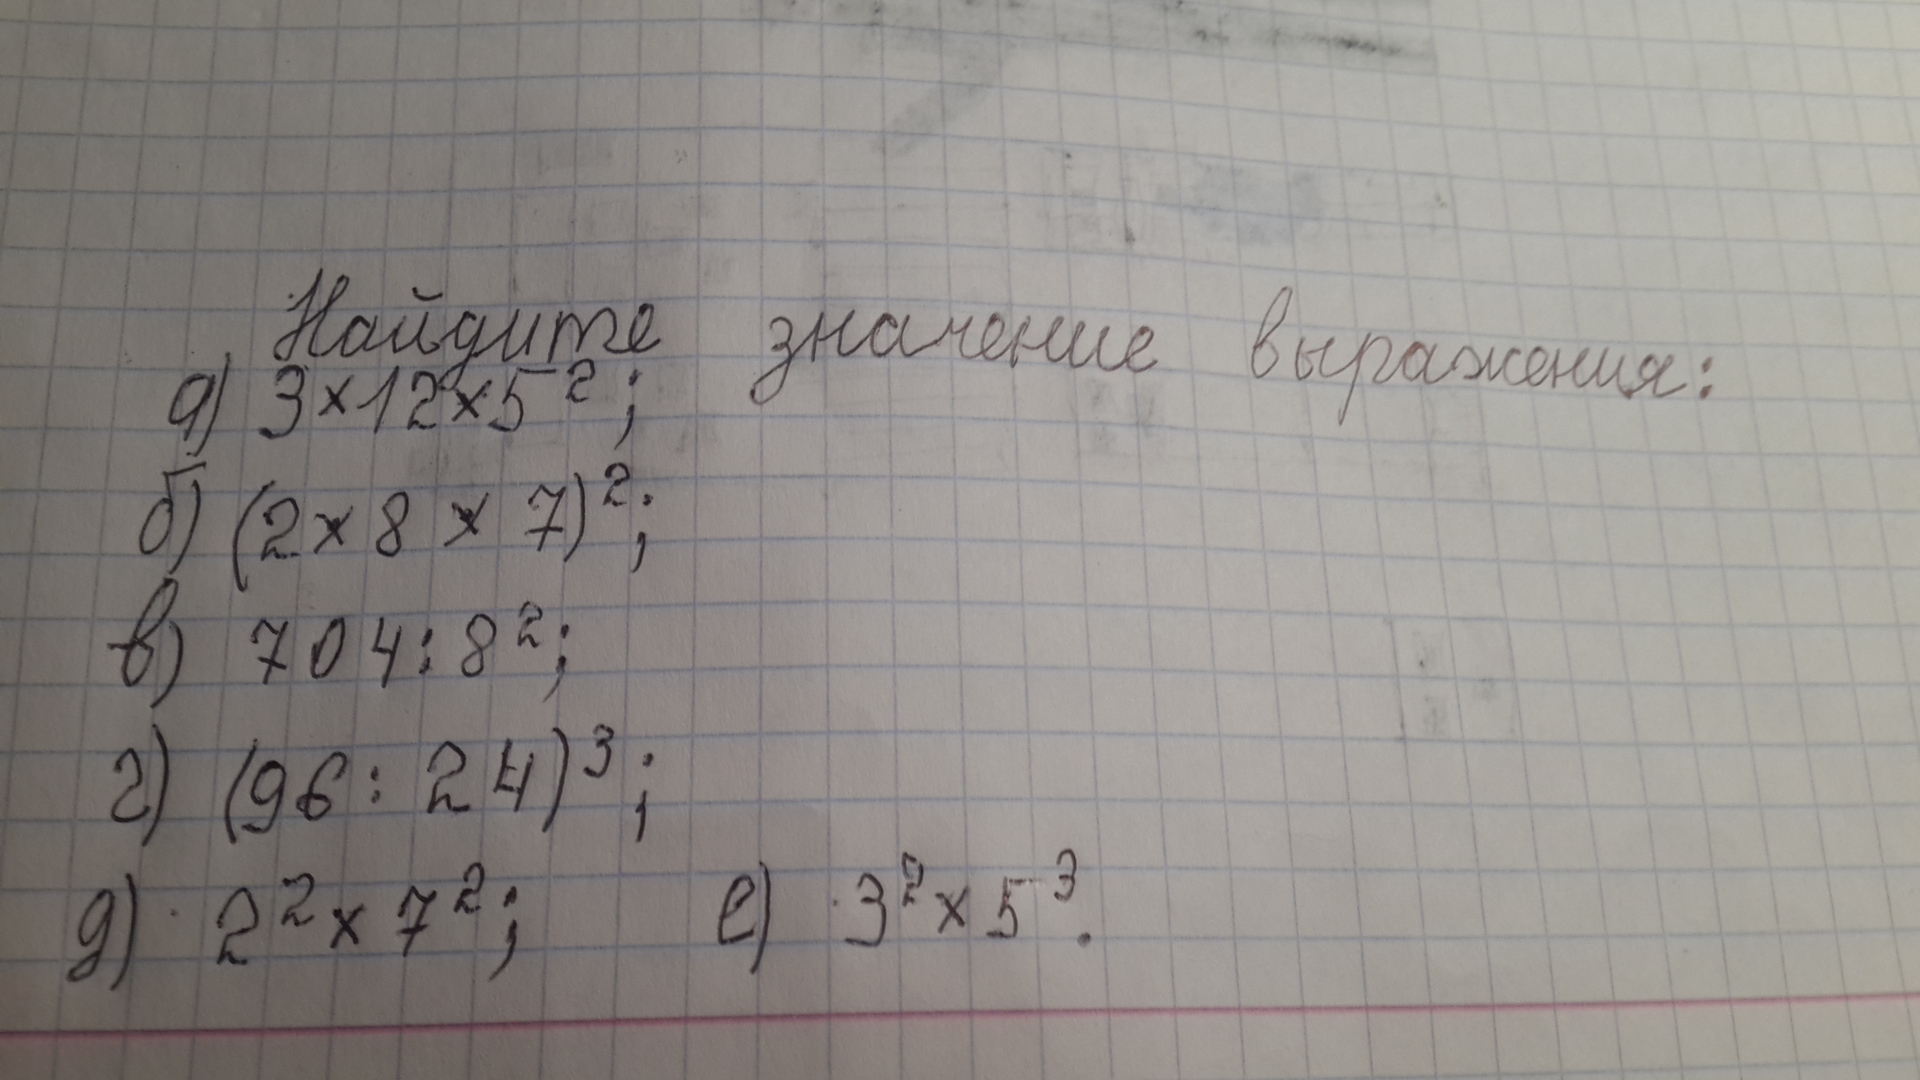 Найдите значение выражения:
а) 3×12×5²;
б) (2×8×7)²;
в) 704:8²;
г) (96:24)³;
д) 2²×7²; е) 3²×5³.